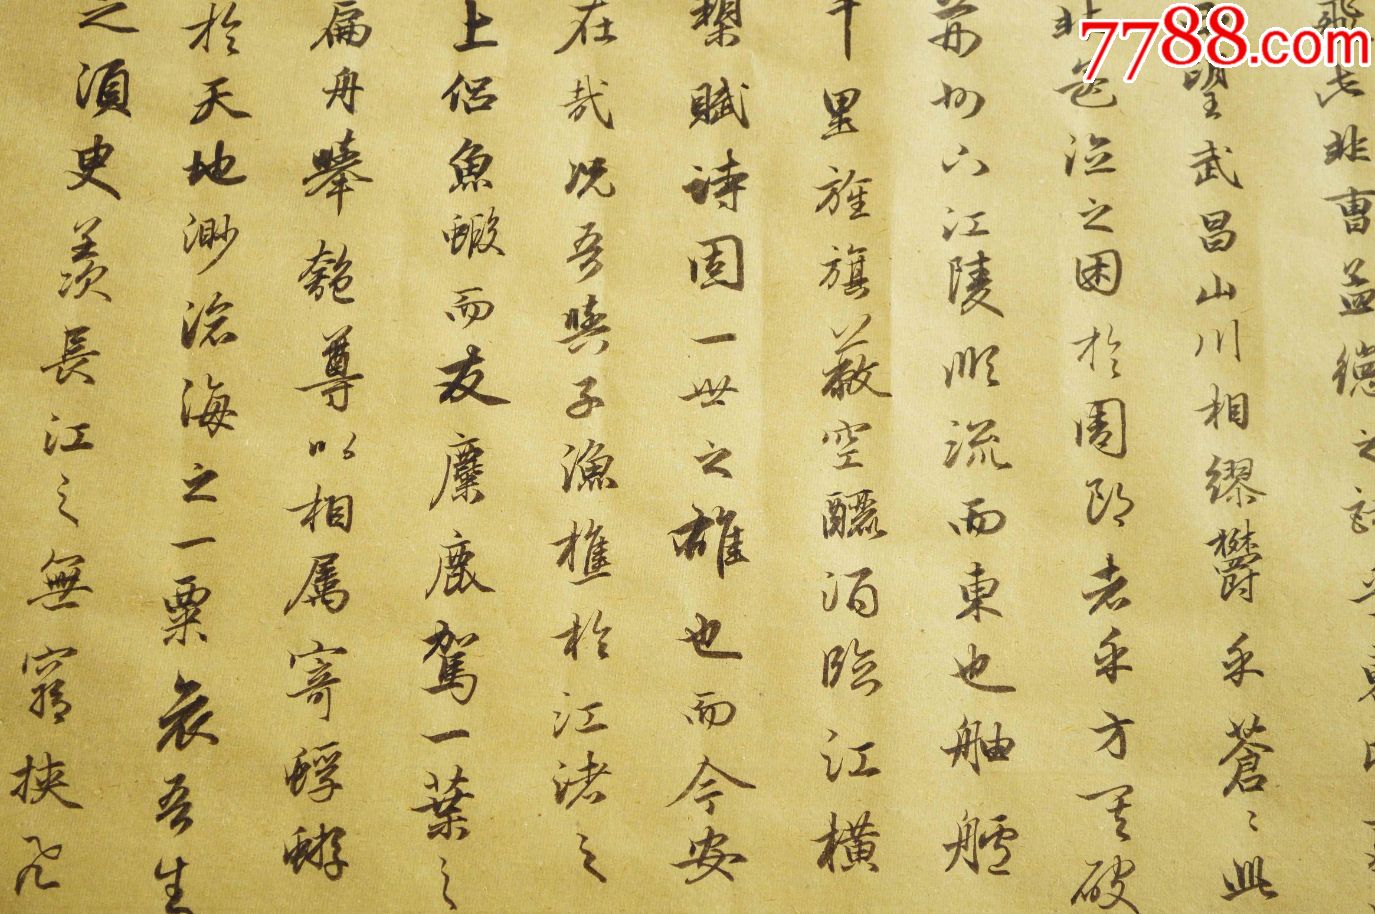 飛此非曹孟德之詩乎東
望武昌山川相繆鬱乎蒼〻此
非孟德之困於周郎者乎方其破
荊州下江陵順流而東也舳艫
千里旌旗蔽空釃酒臨江橫
槊賦詩固一世之雄也而今安
在哉況吾與子漁樵於江渚之
上侣魚蝦而友麋鹿駕一葉之
扁舟舉匏尊以相属寄蜉蝣
於天地渺滄海之一粟哀吾生
之須臾羨長江之無窮挾飛
7788.com